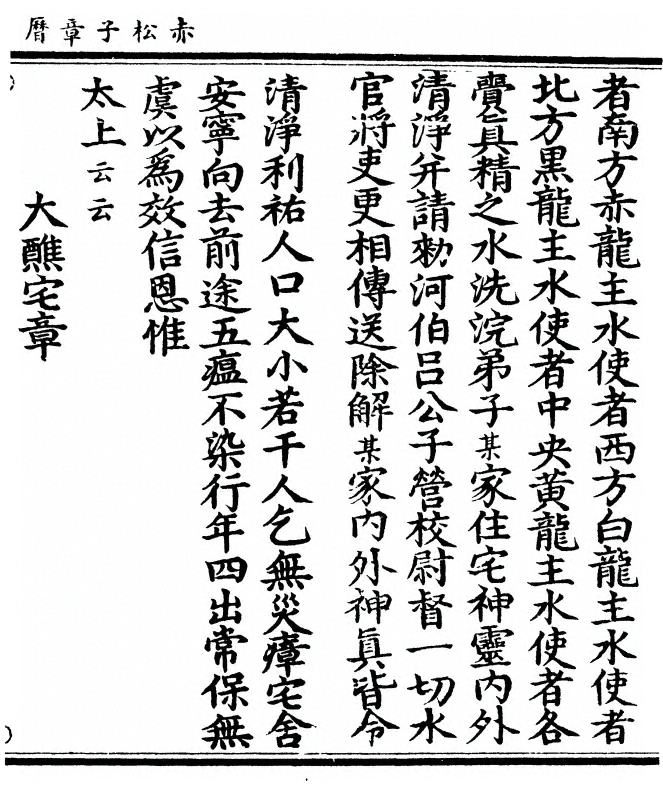 赤松子章曆
者南方赤龍主水使者西方白龍主水使者
北方黑龍主水使者中央黄龍主水使者各
賷真精之水洗浣弟子某家住宅神靈内外
清淨并請勑河伯吕公子營校尉督一切水
官將吏更相傳送除解某家内外神真皆令
清淨利祐人口大小若干人乞無災瘴宅舍
安寧向去前途五瘟不染行年四出常保無
虞以為效信恩惟
太上云云
大醮宅章